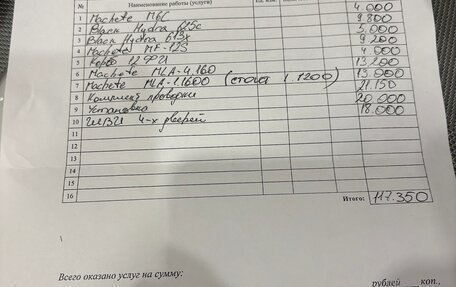 № Наименование работы (услуги) Ед. изм.
4.000
1 Machete M6C 9.800
2 Black Hydra 615c 5.000
3 Black Hydra 613x 9.200
4 Machete MF-12S 4.000
5 13.200
6 Machete MLA-4.160 13.000
7 Machete MLA-1.1600 (стоит 1.1200) 21.150
8 Комплект проводки 20.000
9 Установка 18.000
10 4-х дверей
11
12
13
14
15
16
Итого: 117.350
Всего оказано услуг на сумму:
рублей коп.,